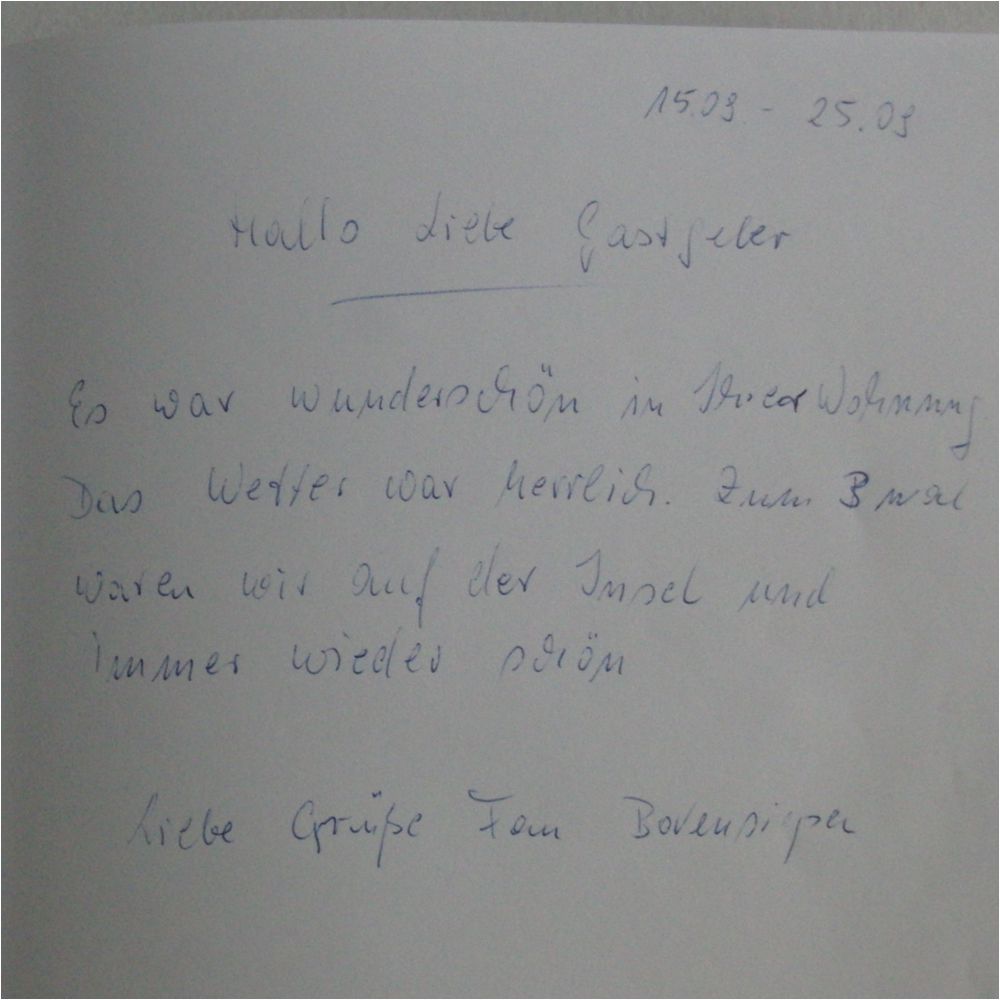 15.09 - 25.09
Hallo Liebe Gastgeber
Es war wunderschön in Ihrer Wohnung
Das Wetter war herrlich. Zum 3 mal
waren wir auf der Insel und
immer wieder schön
Liebe Grüße Fam Bovensiepen